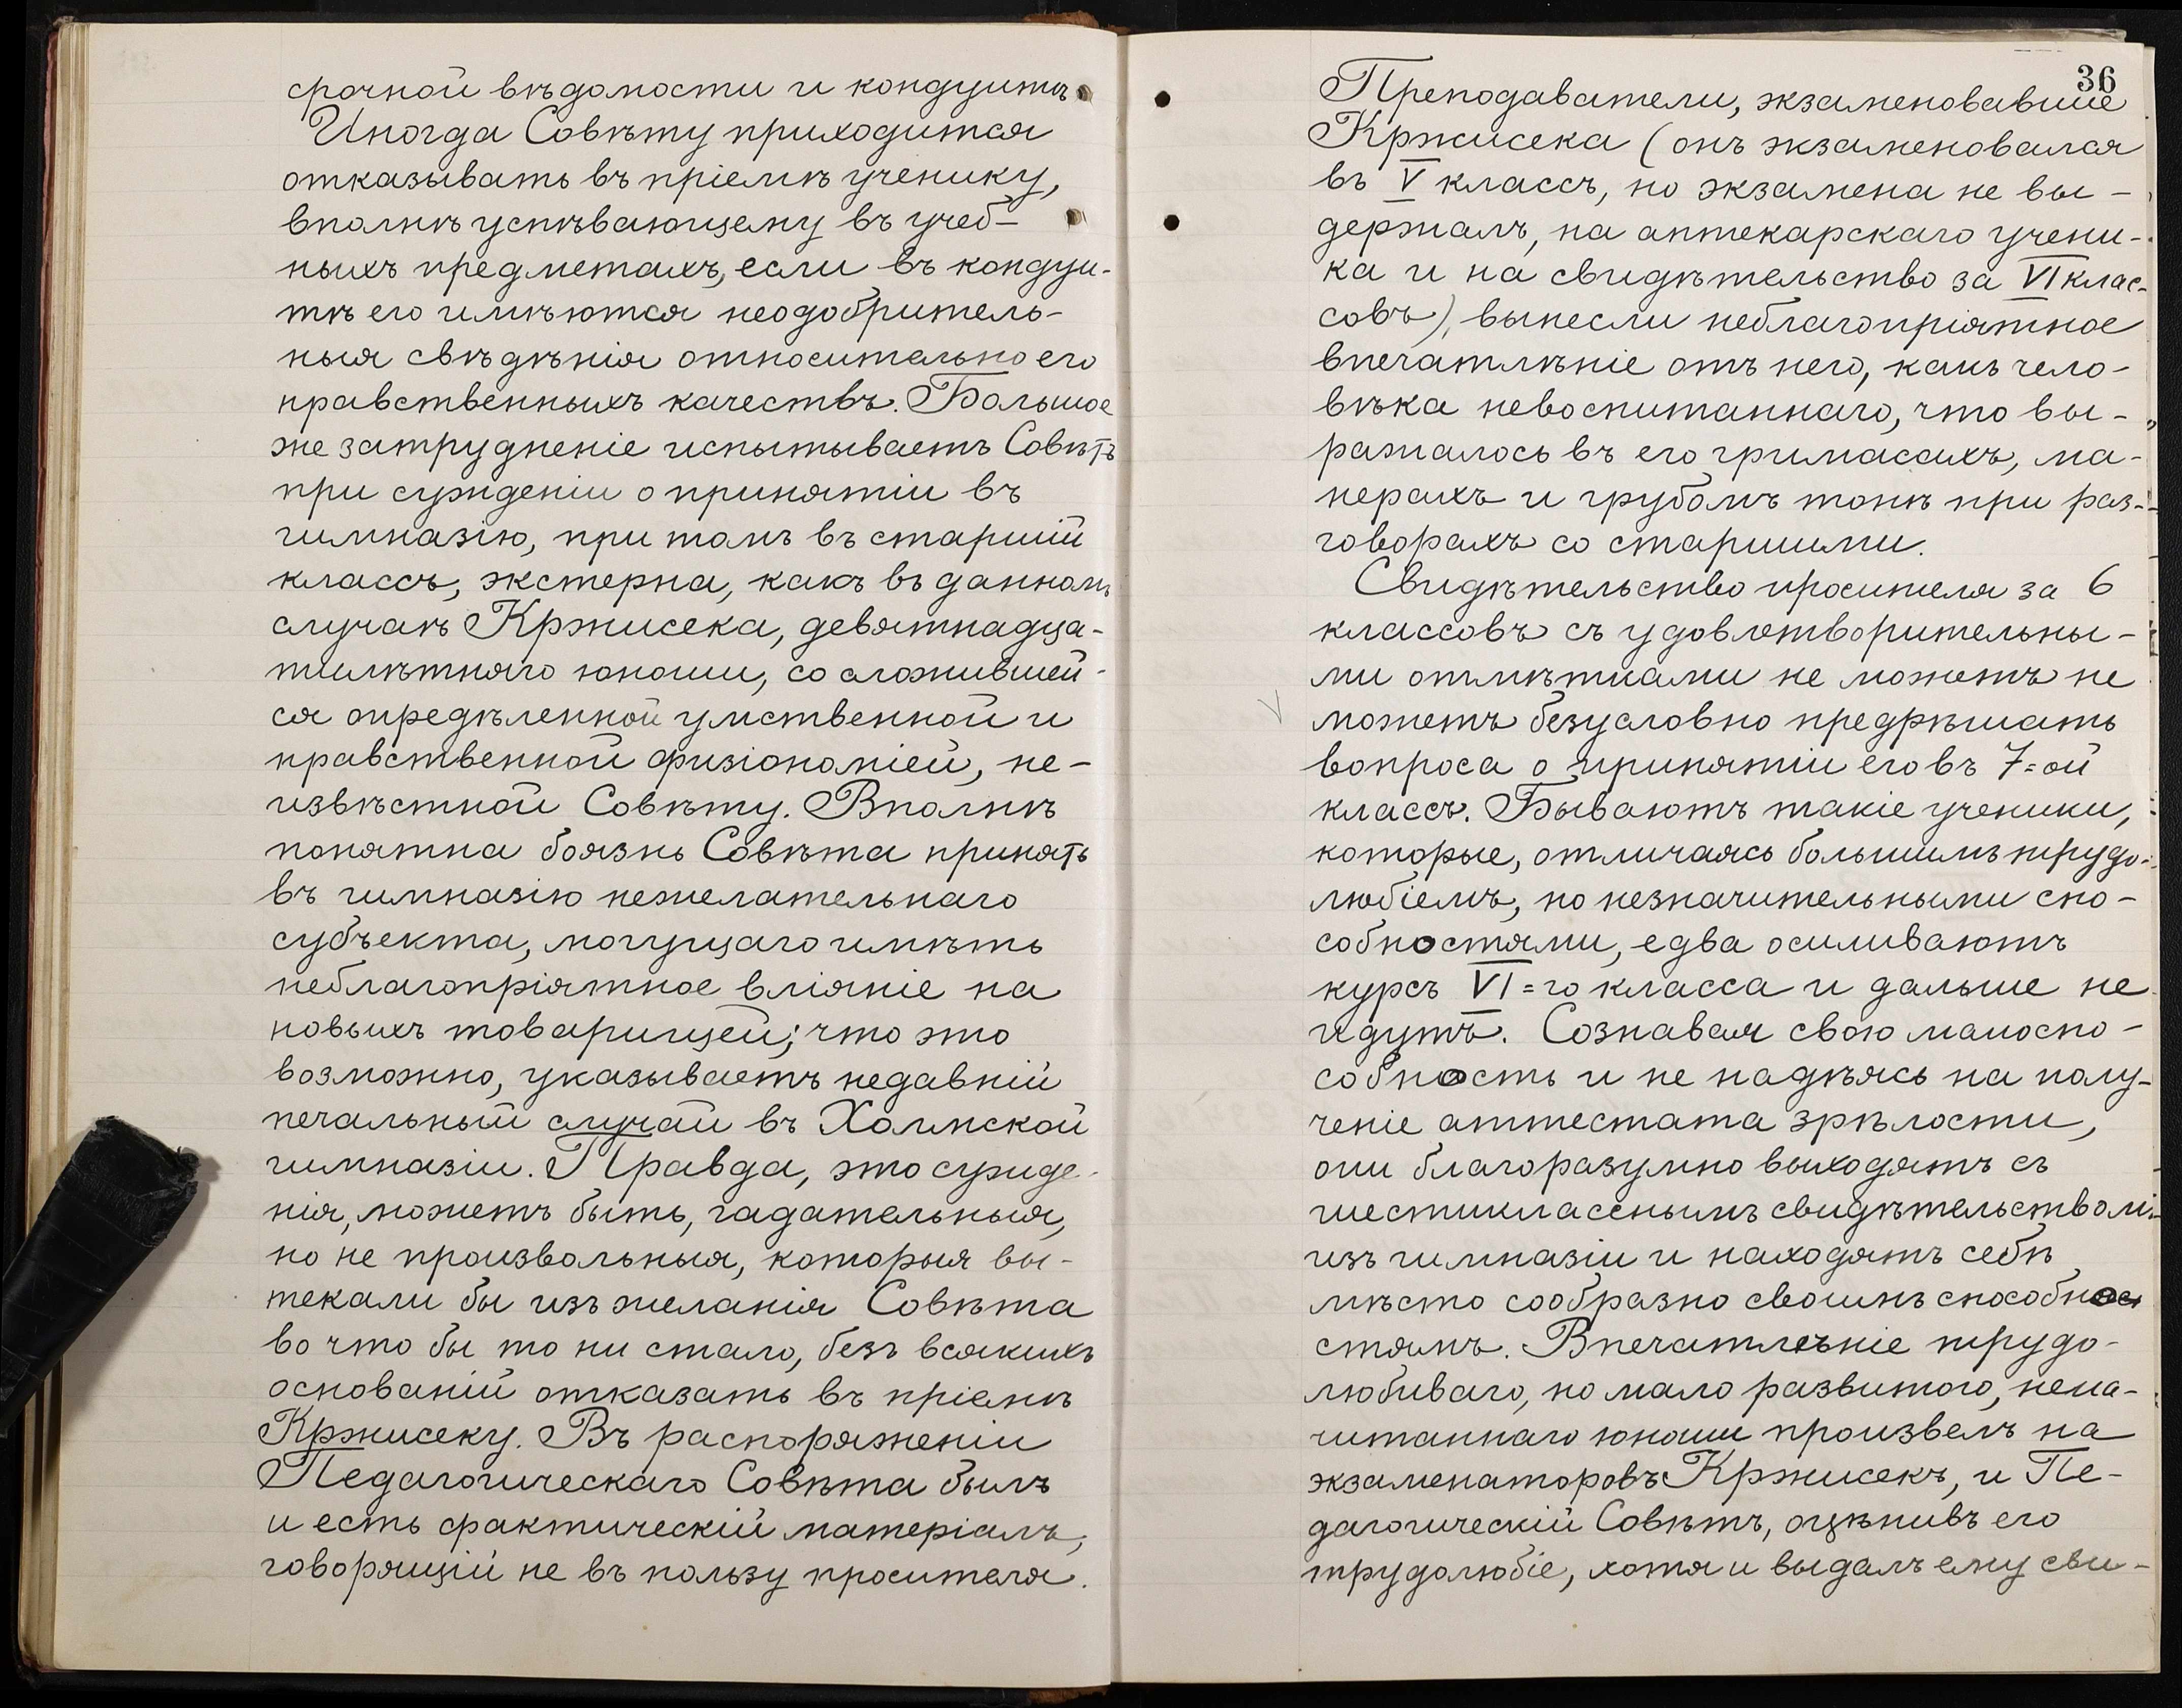 срочной вѣдомости и кондуитъ.
Иногда Совѣту приходится
отказывать въ пріемѣ ученику,
вполнѣ успѣвающему въ учеб-
ныхъ предметахъ, если въ кондуи-
тѣ его имѣются неодобритель-
ныя свѣдѣнія относительно его
нравственныхъ качествъ. Большое
же затрудненіе испытываетъ Совѣтъ
при сужденіи о принятіи въ
гимназію, при томъ въ старшій
классъ, экстерна, какъ въ данномъ
случаѣ Кржисека, девятнадца-
тилѣтняго юноши, со сложившей-
ся опредѣленной умственной и
нравственной физіономіей, не-
извѣстной Совѣту. Вполнѣ
понятна боязнь Совѣта принять
въ гимназію нежелательнаго
субъекта, могущаго имѣть
неблагопріятное вліяніе на
новыхъ товарищей; что это
возможно, указываетъ недавній
печальный случай въ Холмской
гимназіи. Правда, это сужде-
нія, можетъ быть, гадательныя,
но не произвольныя, которыя вы-
текали бы изъ желанія Совѣта
во что бы то ни стало, безъ всякихъ
основаній отказать въ пріемѣ
Кржисеку. Въ распоряженіи
Педагогическаго Совѣта былъ
и есть фактическій матеріалъ,
говорящій не въ пользу просителя.
36
Преподаватели, экзаменовавшіе
Кржисека (онъ экзаменовался
въ V классъ, но экзамена не вы-
держалъ, на аптекарскаго учени-
ка и на свидѣтельство за VI клас-
совъ), вынесли неблагопріятное
впечатлѣніе отъ него, какъ чело-
вѣка невоспитаннаго, что вы-
ражалось въ его гримасахъ, ма-
нерахъ и грубомъ тонѣ при раз-
говорахъ со старшими.
Свидѣтельство просителя за 6
классовъ съ удовлетворительны-
ми отмѣтками не можетъ не
можетъ безусловно предрѣшать
вопроса о принятіи его въ 7=ой
классъ. Бываютъ такіе ученики,
которые, отличаясь большимъ трудо-
любіемъ, но незначительными спо-
собностями, едва осиливаютъ
курсъ VI=го класса и дальше не
идутъ. Сознавая свою малоспо-
собность и не надѣясь на полу-
ченіе аттестата зрѣлости,
они благоразумно выходятъ съ
шестикласснымъ свидѣтельствомъ
изъ гимназіи и находятъ себѣ
мѣсто сообразно своимъ способно-
стямъ. Впечатлѣніе трудо-
любиваго, но мало развитого, нена-
читаннаго юноши произвелъ на
экзаменаторовъ Кржисекъ, и Пе-
дагогическій Совѣтъ, оцѣнивъ его
трудолюбіе, хотя и выдалъ ему сви-